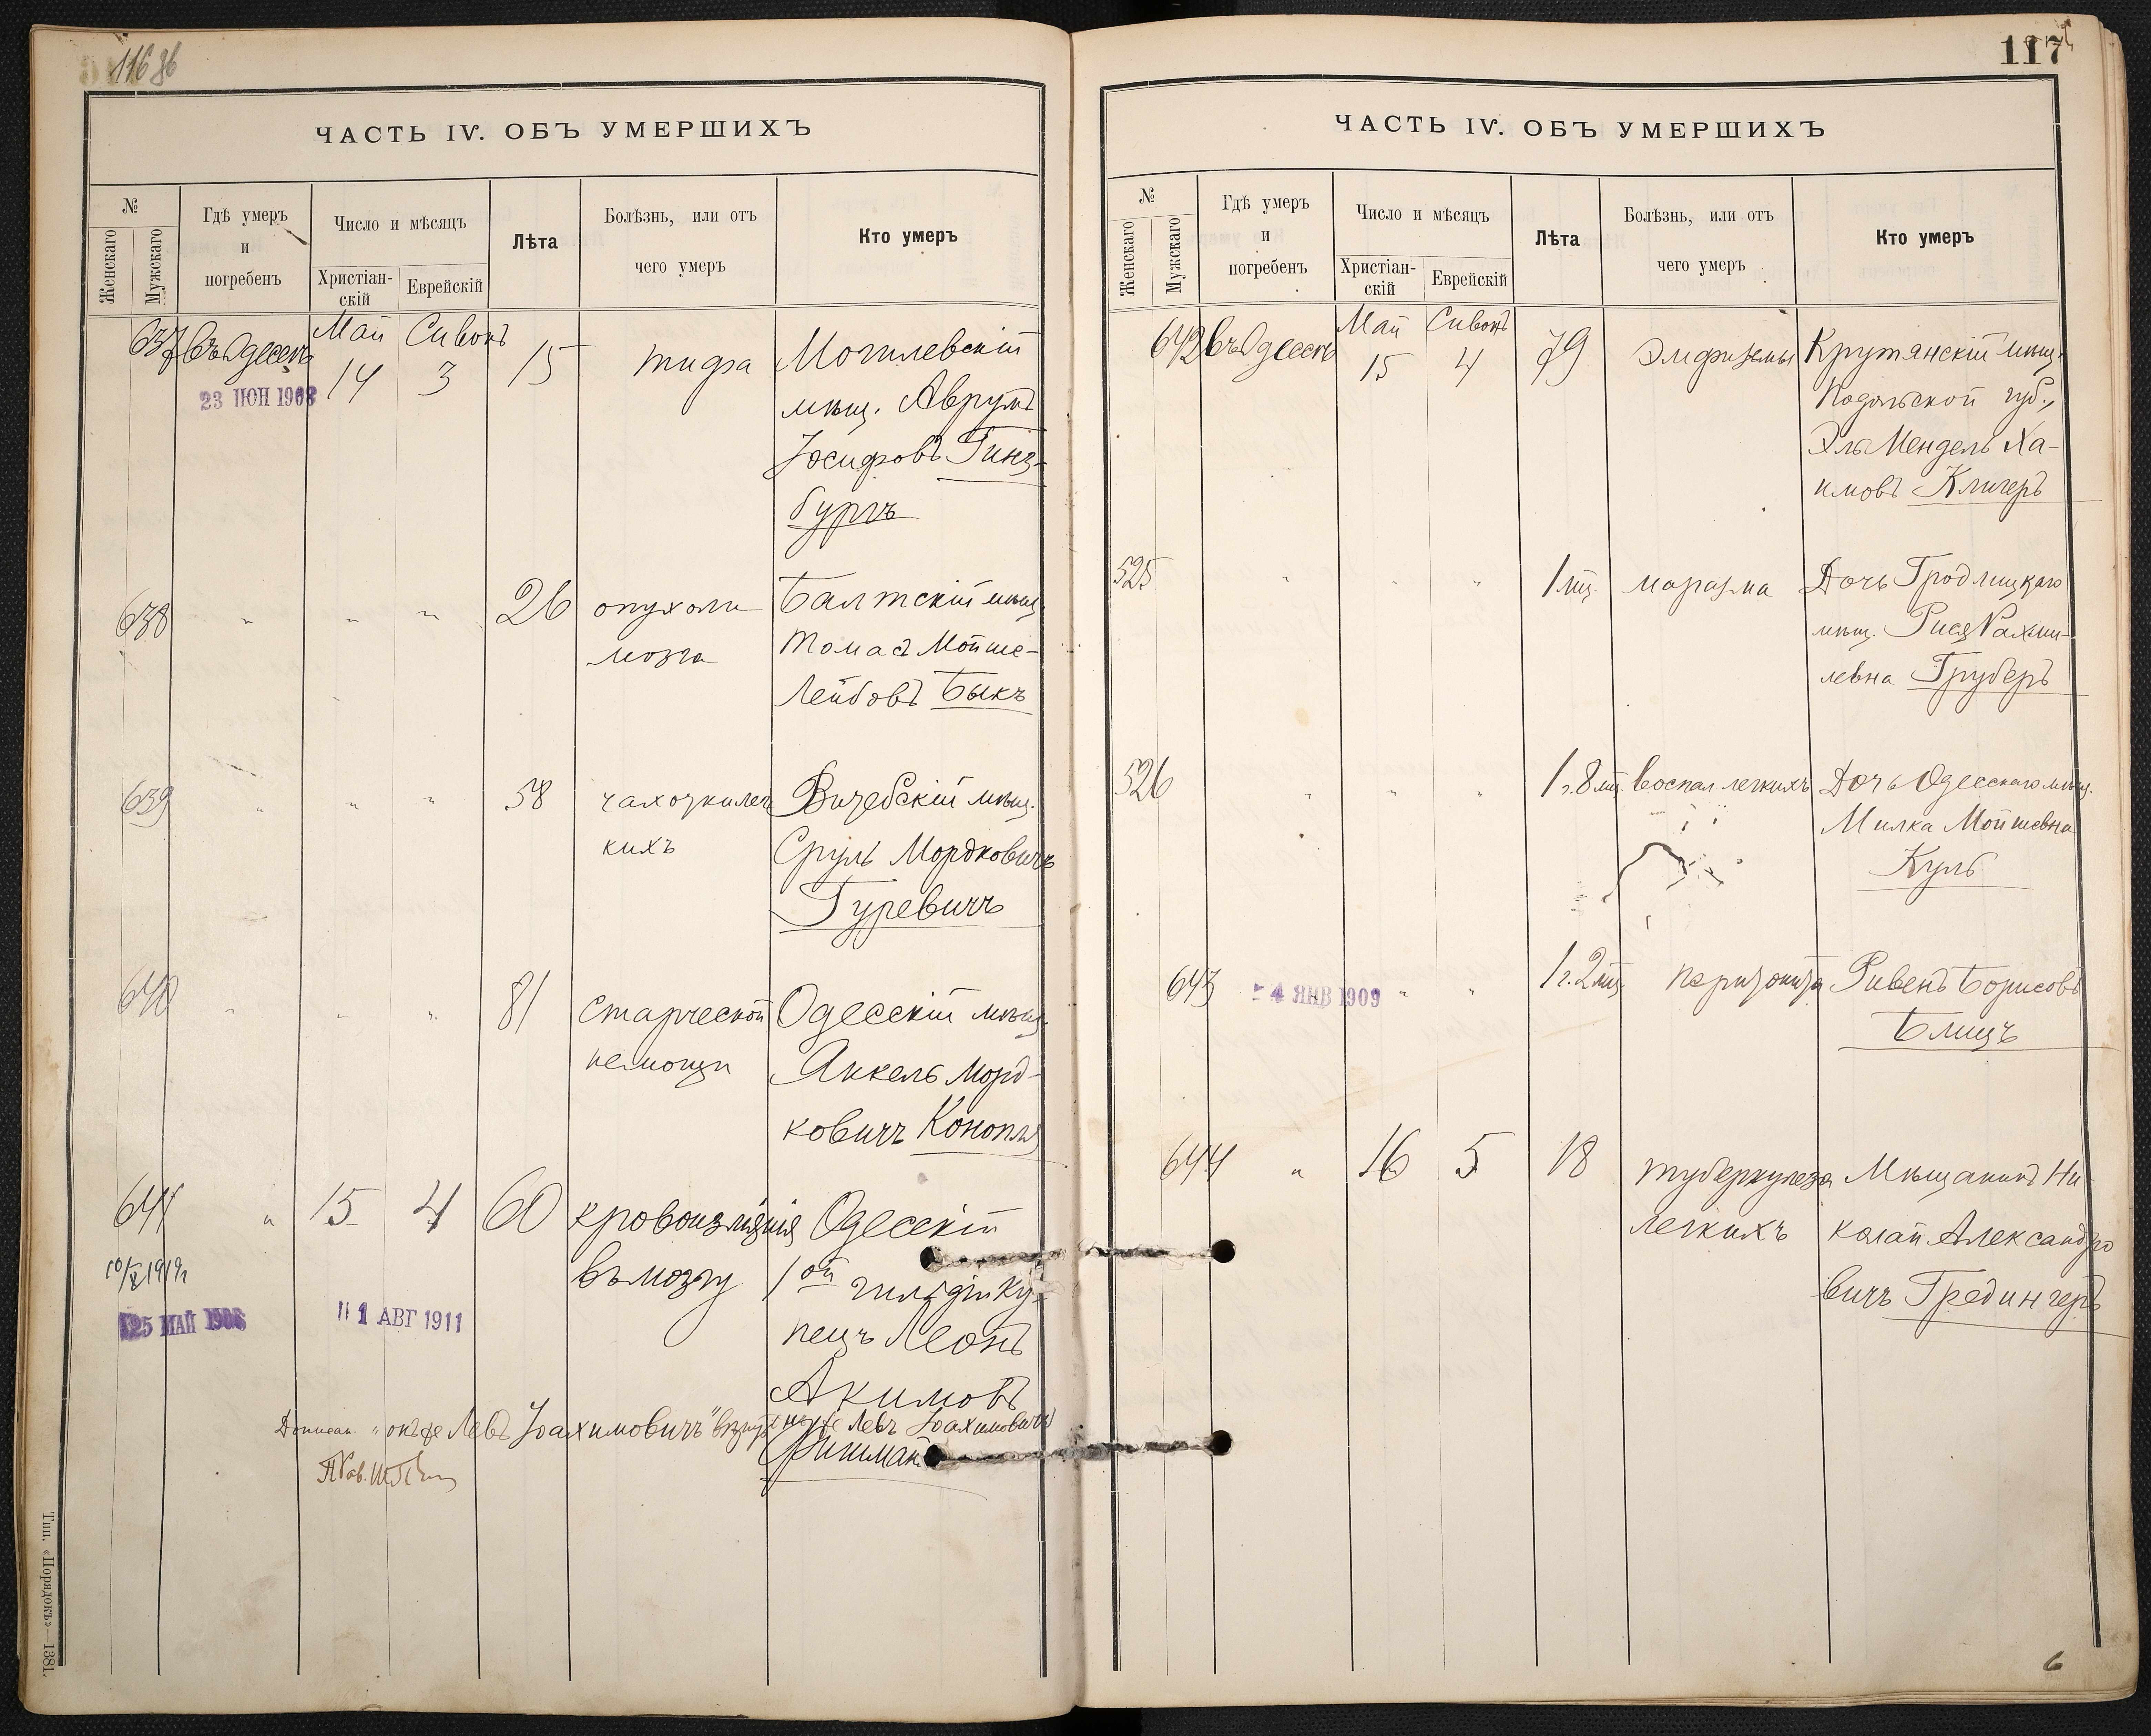 116 об
ЧАСТЬ IV. ОБЪ УМЕРШИХЪ
№
Женскаго
Мужскаго
Гдѣ умеръ
и
погребенъ
Число и мѣсяцъ
Христіан-
скій
Еврейскій
Лѣта
Болѣзнь, или отъ
чего умеръ
Кто умеръ
637 Въ Одессѣ Май 14 Сивонъ 3 15 тифа Могилевскій
мѣщ. Аврумъ
Іосифовъ Гинз-
бургъ
23 ІЮН 1908
638 " " " 26 опухоли Балтскій мѣщ.
мозга Томасъ Мойше-
Лейбовъ Быкъ
639 " " " 58 чахотки лег Витебскій мѣщ.
кихъ Сруль Мордковичъ
Гуревичъ
640 " " " 81 старческой Одесскій мѣщ.
немощи Янкель Морд-
ковичъ Конопля
641 " 15 4 60 кровоизліянія Одесскій
въ мозгу 1ой гильдіи Ку-
пецъ Леонъ
Акимовъ
онъ же Левъ Іоахимовичъ
Фишман
10/X 1919
25 МАЙ 1908
1 АВГ 1911
Дописан. "онъ же Левъ Іоахимовичъ"
Тип. «Порядокъ»—1381.
117
ЧАСТЬ IV. ОБЪ УМЕРШИХЪ
№
Женскаго
Мужскаго
Гдѣ умеръ
и
погребенъ
Число и мѣсяцъ
Христіан-
скій
Еврейскій
Лѣта
Болѣзнь, или отъ
чего умеръ
Кто умеръ
642 Въ Одессѣ Май 15 Сивонъ 4 79 Эмфиземы Крутянскій мѣщ.
Подольской губ.,
Эль Мендель Ха-
имовъ Клигеръ
525 " " " 1 мц. маразма Дочь Гродлицкаго
мѣщ. Рися Рахми-
левна Груберъ
526 " " " 1 г. 8 мц. воспал. легкихъ Дочь Одесскаго мѣщ.
Милка Мойшевна
Куль
643 4 ЯНВ 1909 " " 1 г. 2 мц. перитонита Рувенъ Борисовъ
Блицъ
644 " 16 5 18 туберкулеза Мѣщанинъ Ни-
легкихъ колай Александро
вичъ Гредингеръ
6